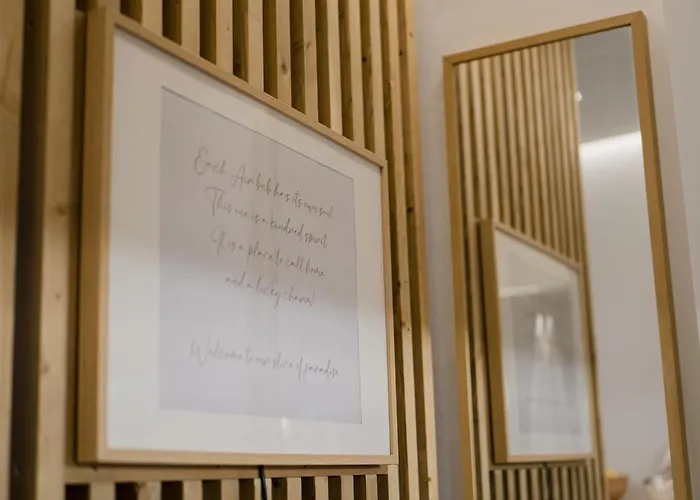 Each Airbnb has its own soul.
This one is a kindred spirit.
It is a place to call home
and a lucky charm!
Welcome to our slice of paradise